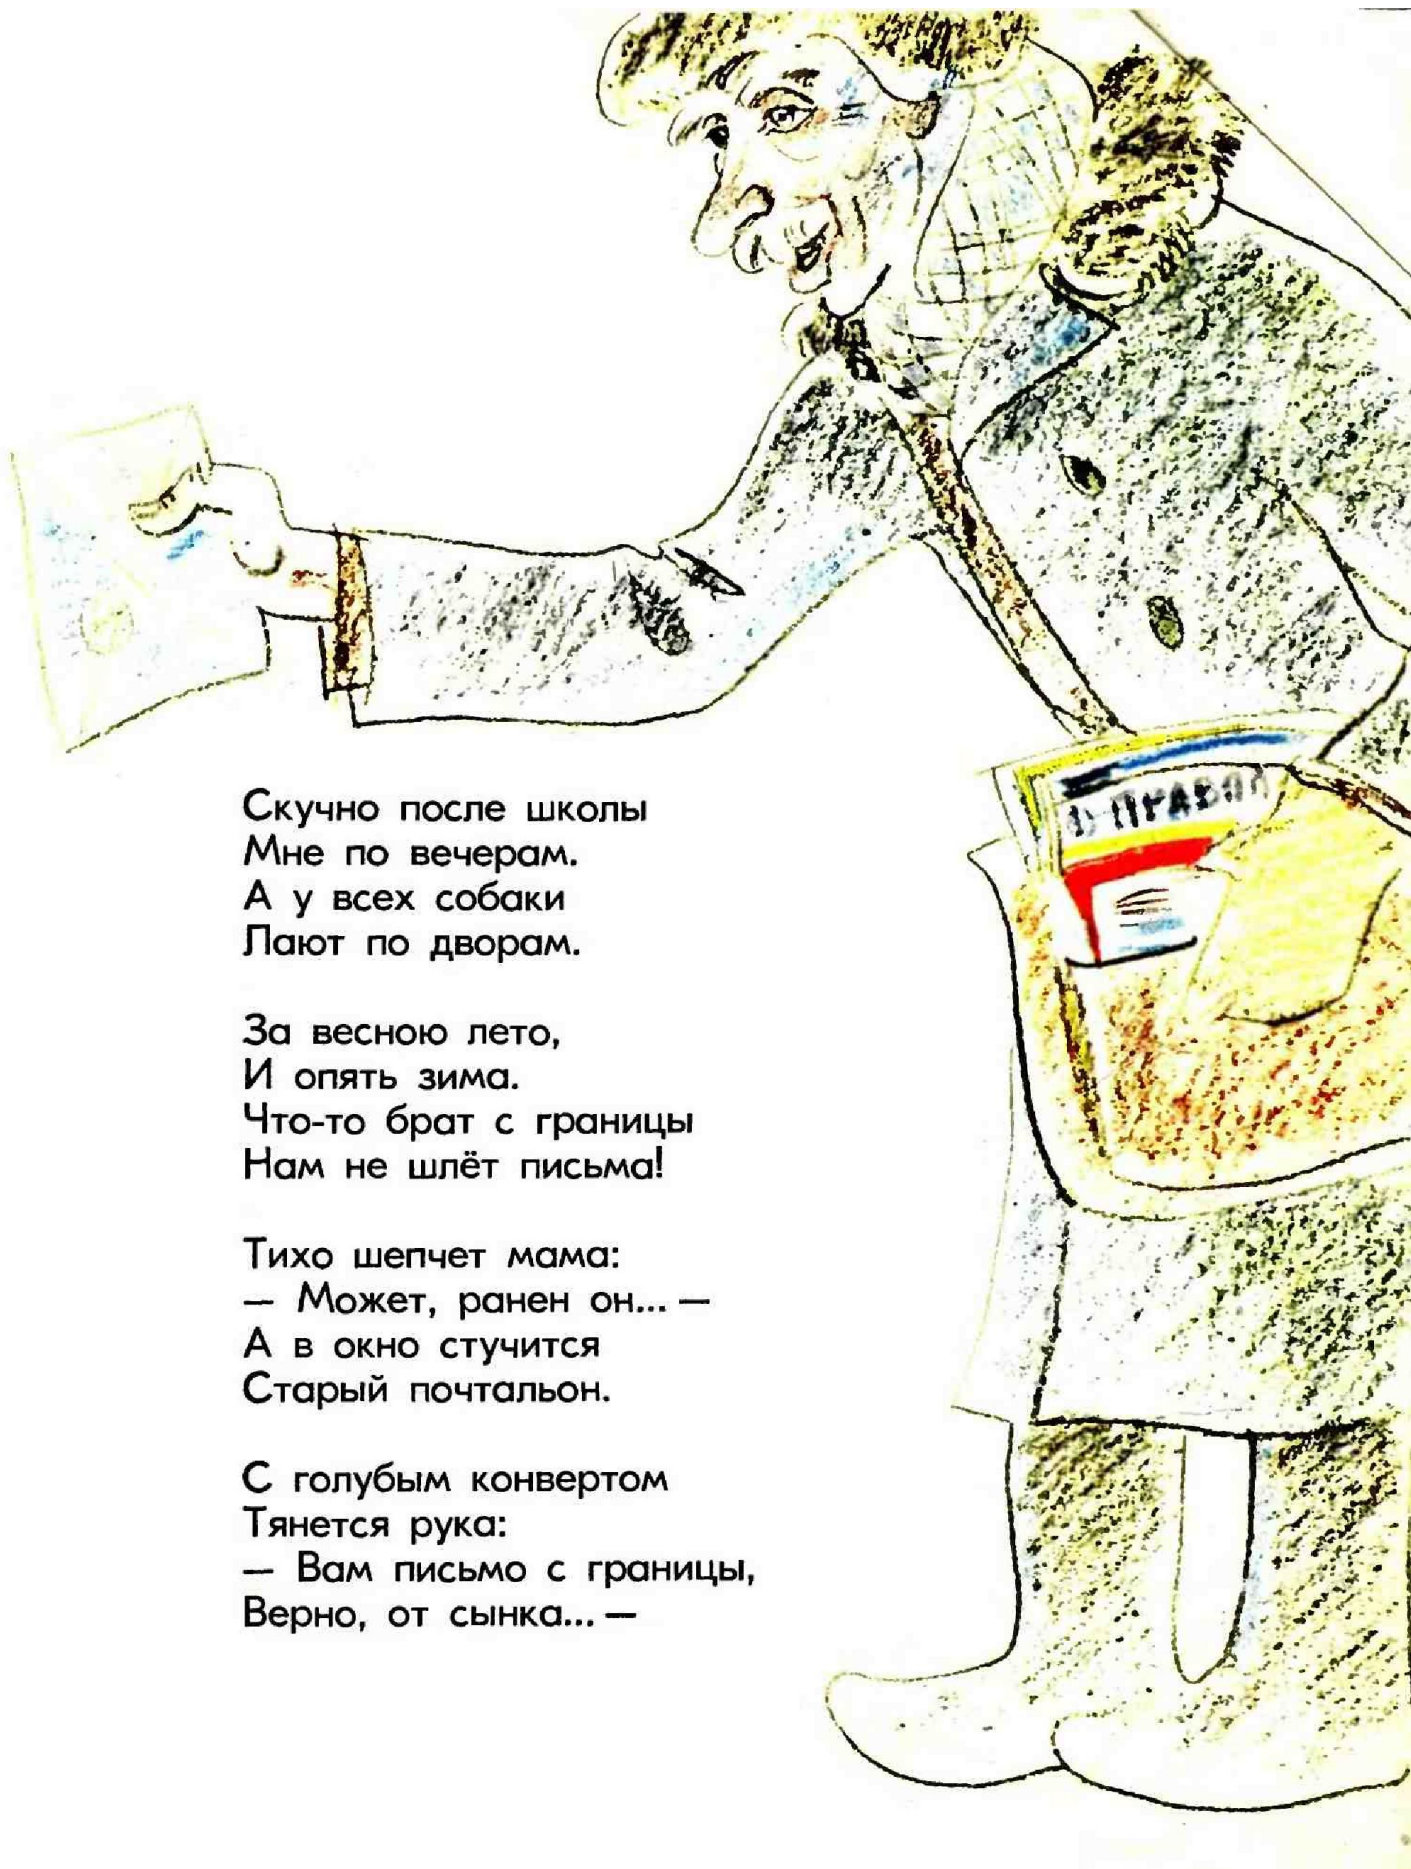 Скучно после школы
Мне по вечерам.
А у всех собаки
Лают по дворам.
За весною лето,
И опять зима.
Что-то брат с границы
Нам не шлёт письма!
Тихо шепчет мама:
— Может, ранен он... —
А в окно стучится
Старый почтальон.
С голубым конвертом
Тянется рука:
— Вам письмо с границы,
Верно, от сынка... —